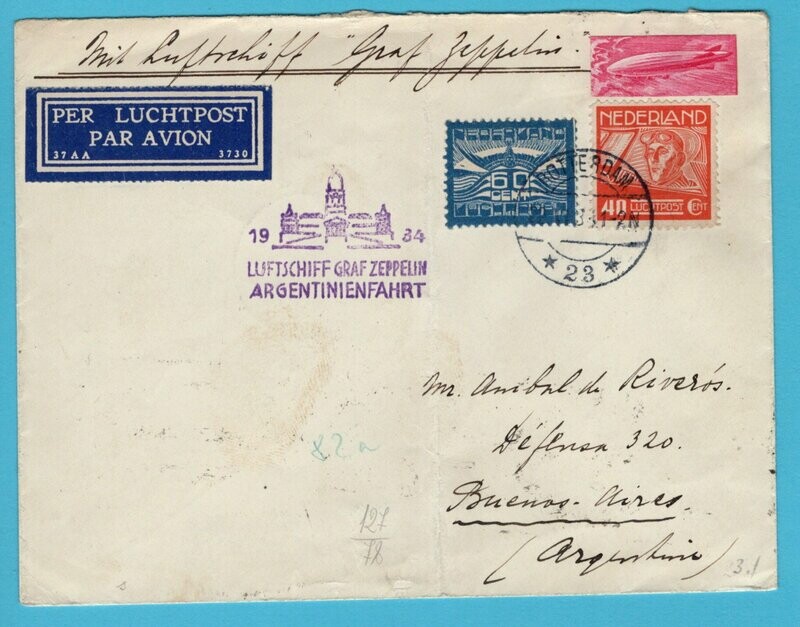 Mit Luftschiff "Graf Zeppelin."
PER LUCHTPOST
PAR AVION
37AA 3730
NEDERLAND
60
CENT
NEDERLAND
40 LUCHTPOST CENT
ROTTERDAM
★ 23 ★
19 34
LUFTSCHIFF GRAF ZEPPELIN
ARGENTINIENFAHRT
Mr. Anibal de Riverós.
Défensa 320.
Buenos-Aires.
(Argentine)
82a
127
78
3.1